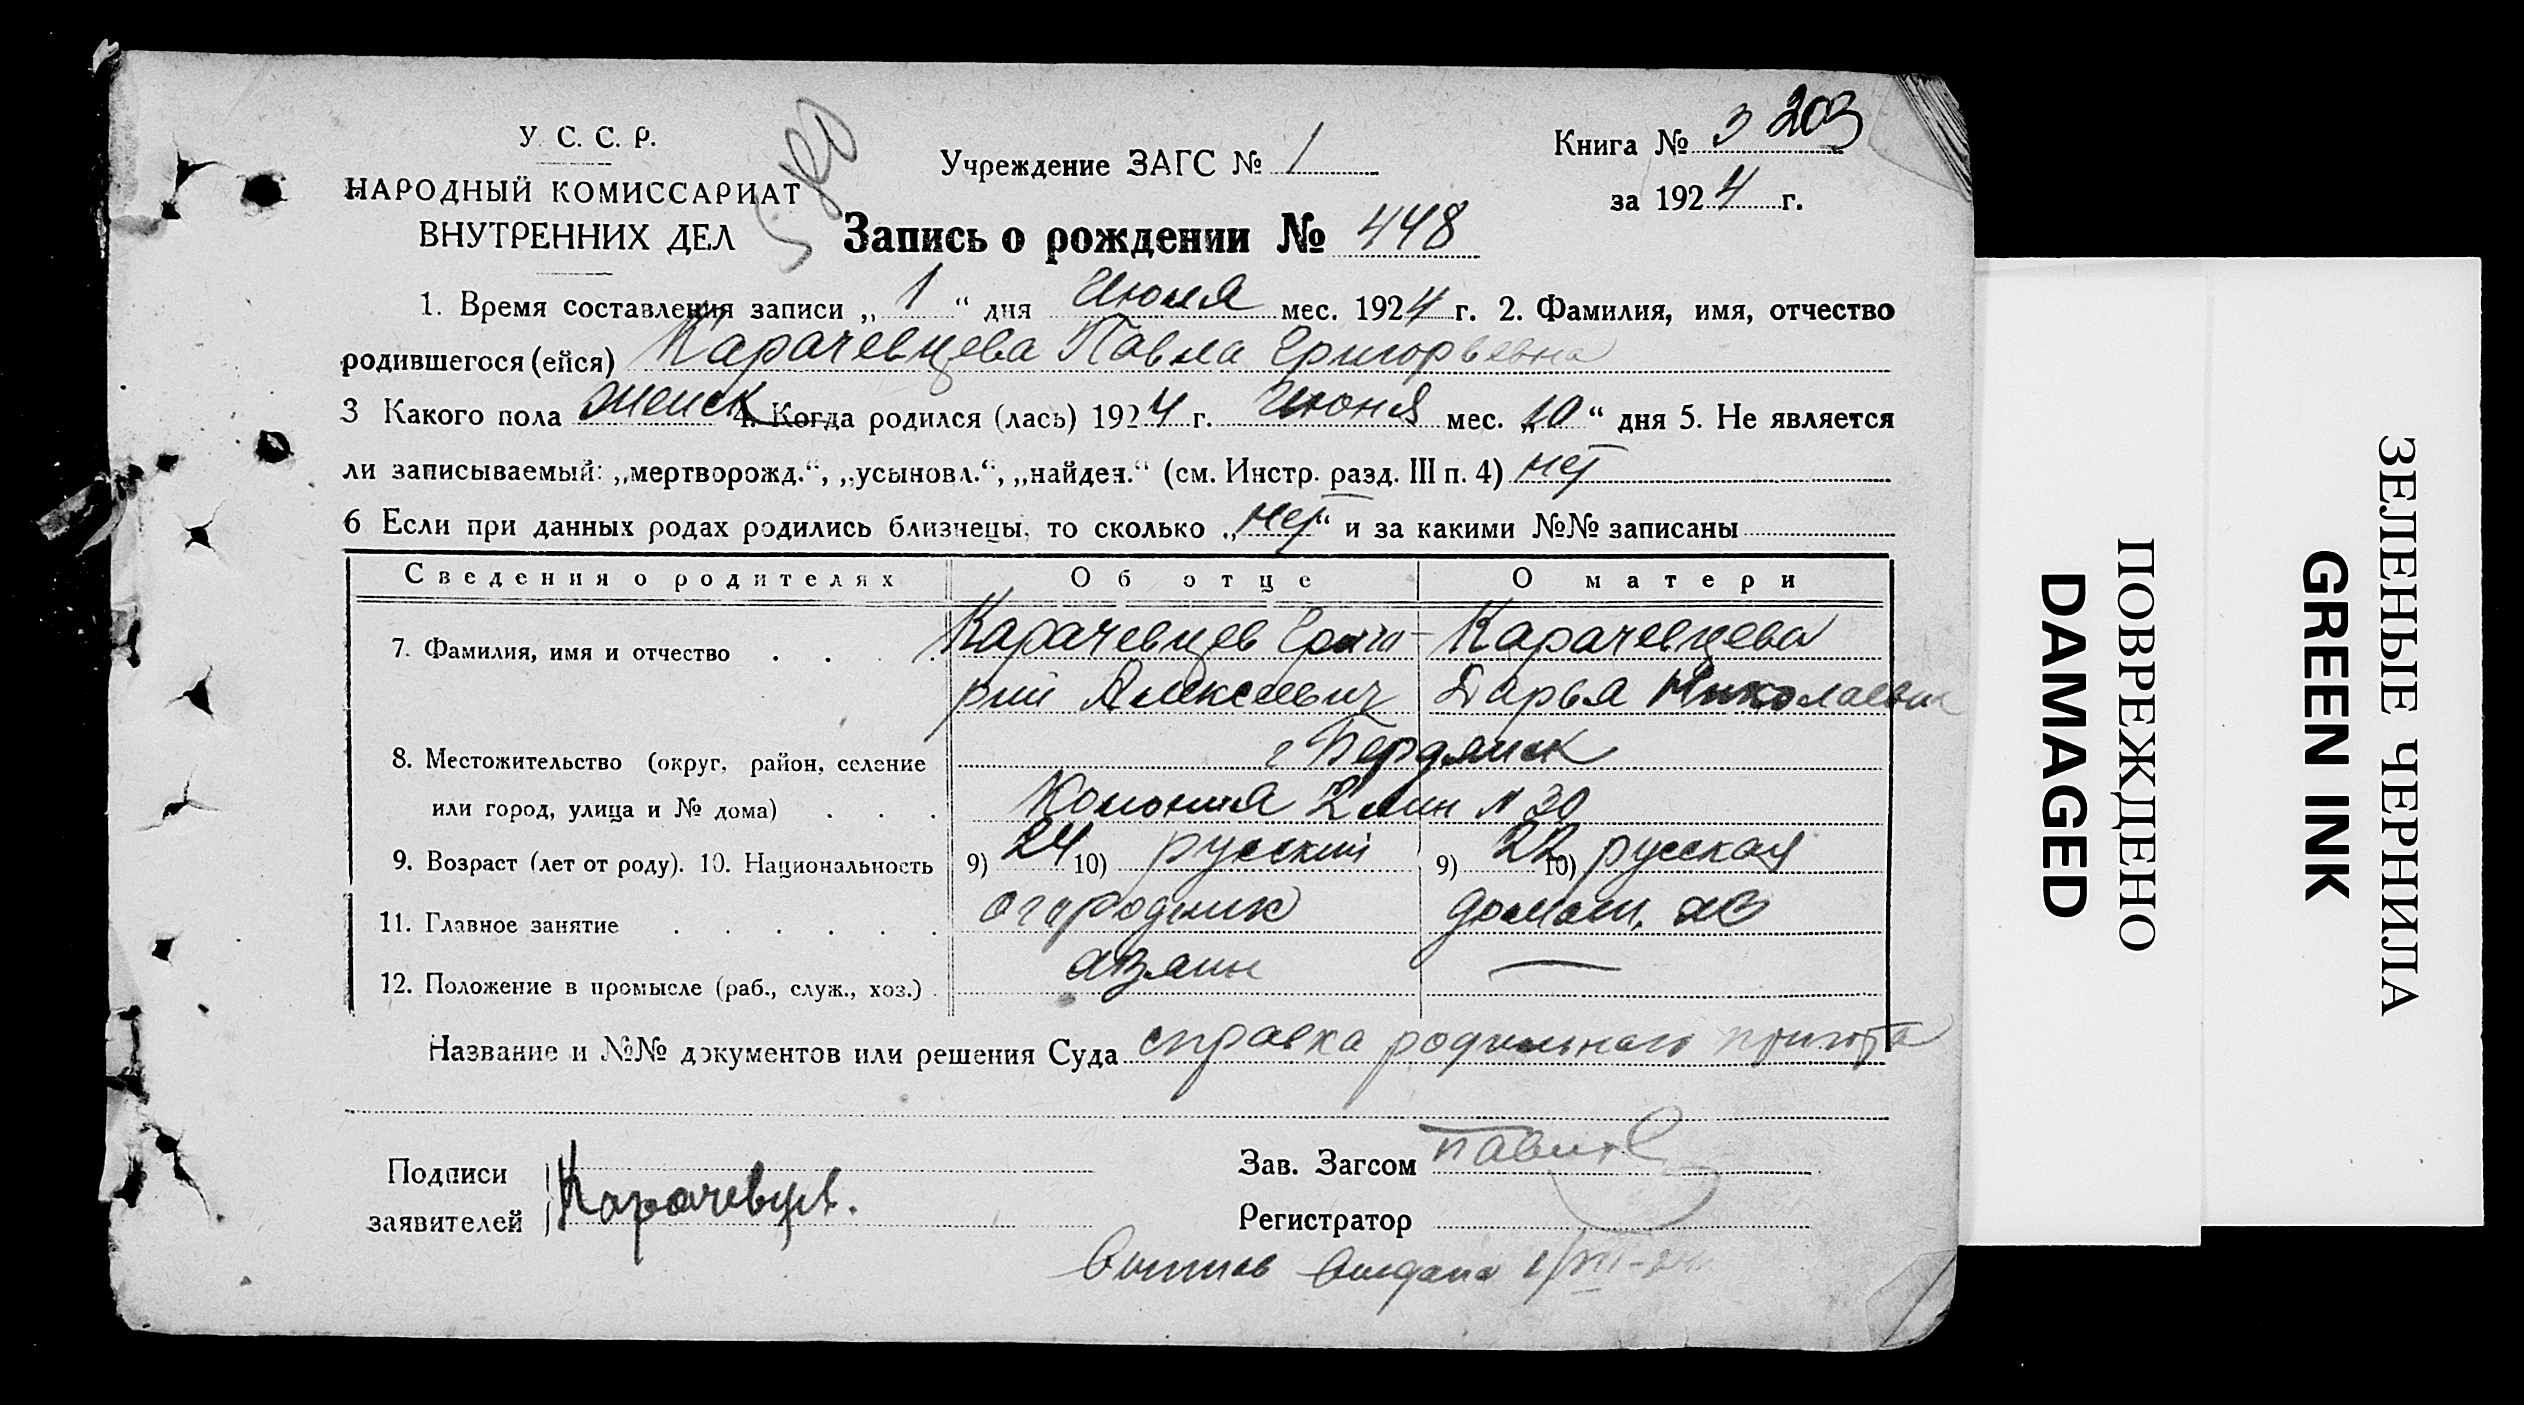 У. С. С. Р.
НАРОДНЫЙ КОМИССАРИАТ
ВНУТРЕННИХ ДЕЛ
Учреждение ЗАГС № 1
Книга № 3 203
за 1924 г.
Запись о рождении № 448
1. Время составления записи „ 1 “ дня Июля мес. 1924 г. 2. Фамилия, имя, отчество
родившегося (ейся) Карачевцева Павла Григорьевна
3 Какого пола женск 4. Когда родился (лась) 1924 г. Июня мес. „10“ дня 5. Не является
ли записываемый: „мертворожд.“, „усыновл.“, „найден.“ (см. Инстр. разд. III п. 4) нет
6 Если при данных родах родились близнецы, то сколько „нет“ и за какими №№ записаны
Сведения о родителях Об отце О матери
7. Фамилия, имя и отчество Карачевцев Григо- Карачевцева
рий Алексеевич Дарья Николаевна
8. Местожительство (округ, район, селение г Бердянск
или город, улица и № дома) Колония 2 лин № 30
9. Возраст (лет от роду). 10. Национальность 9) 24 10) русский 9) 22 10) русская
11. Главное занятие огородник домаш. хоз
12. Положение в промысле (раб., служ., хоз.) хозяин —
Название и №№ документов или решения Суда справка родильнаго приюта
Подписи
заявителей Карачевцев.
Зав. Загсом
Регистратор
Выпись выдана
ПОВРЕЖДЕНО
DAMAGED
ЗЕЛЕНЫЕ ЧЕРНИЛА
GREEN INK